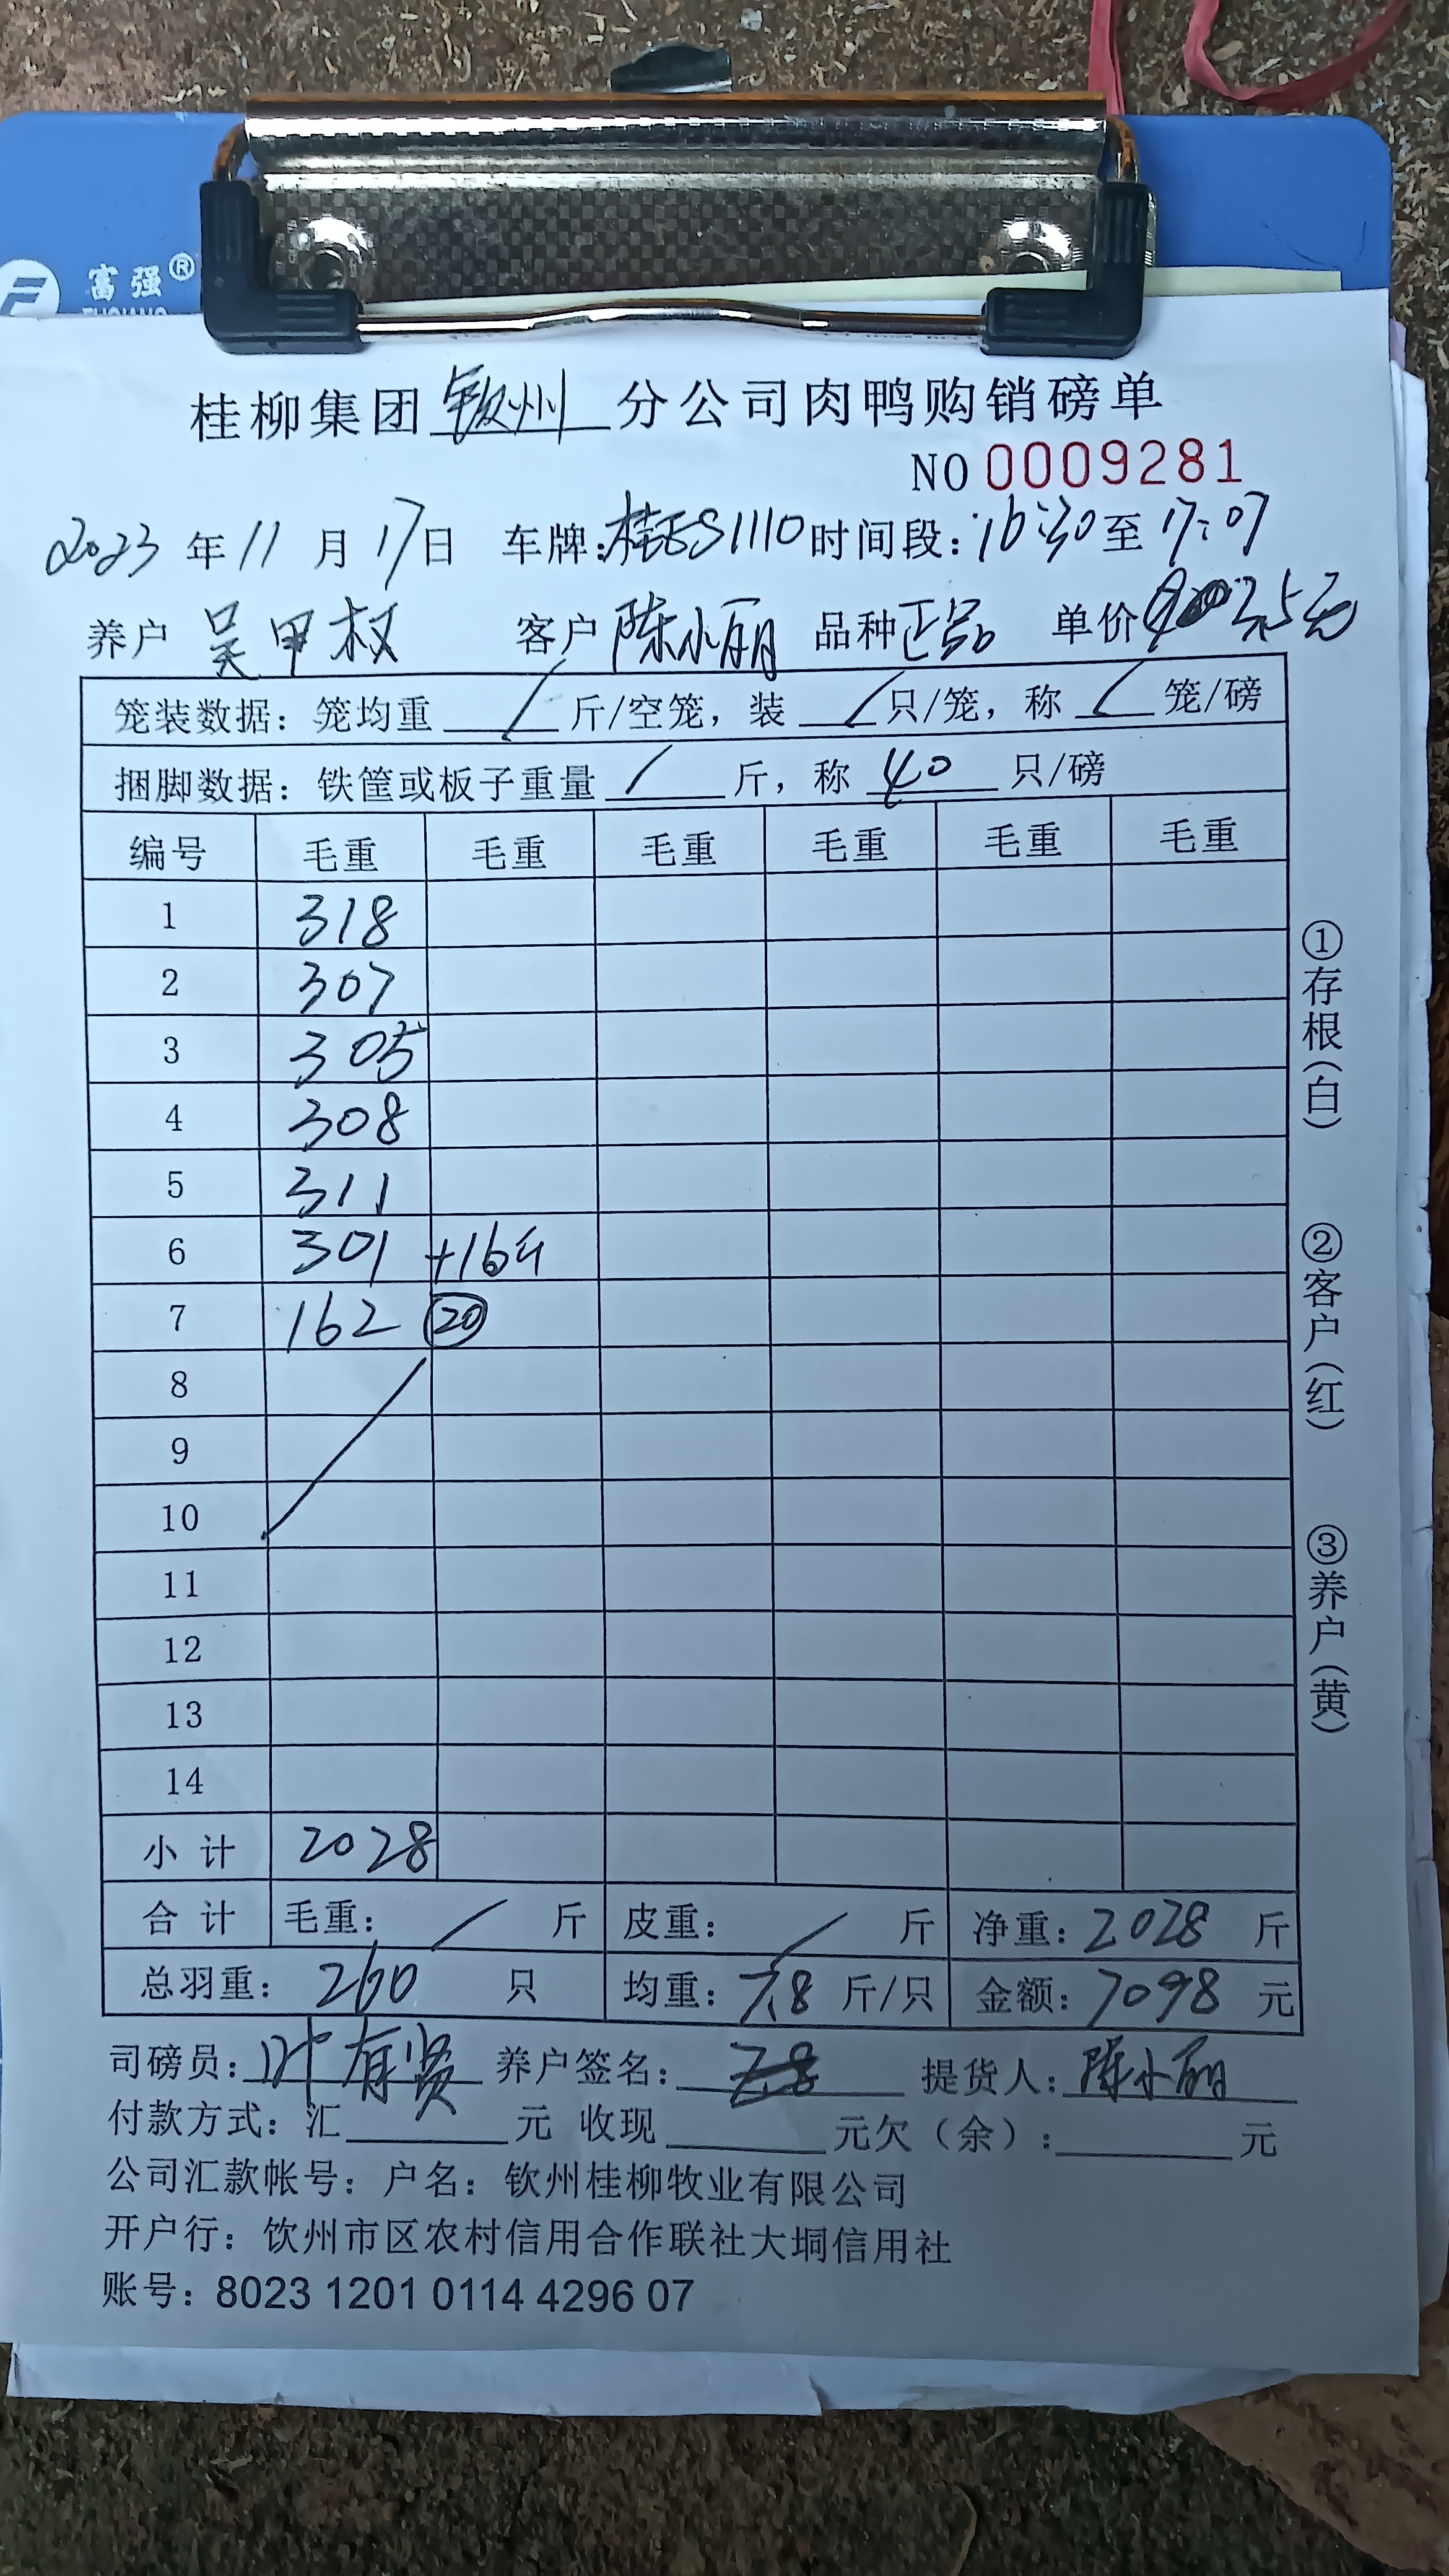 富强®
桂柳集团钦州分公司肉鸭购销磅单
NO 0009281
2023年11月17日 车牌:桂ES1110 时间段:16:30至17:07
养户 吴甲权 客户 陈小丽 品种 正品 单价 3.5元
笼装数据: 笼均重 / 斤/空笼, 装 / 只/笼, 称 / 笼/磅
捆脚数据: 铁筐或板子重量 / 斤, 称 40 只/磅
编号 毛重 毛重 毛重 毛重 毛重 毛重
1 318
2 307
3 305
4 308
5 311
6 301 +16斤
7 162 20
8
9
10
11
12
13
14
小计 2028
合计 毛重: / 斤 皮重: / 斤 净重: 2028 斤
总羽重: 260 只 均重: 7.8 斤/只 金额: 7098 元
司磅员: 叶有贤 养户签名: 提货人: 陈小丽
付款方式: 汇 元 收现 元欠(余): 元
公司汇款帐号: 户名: 钦州桂柳牧业有限公司
开户行: 饮州市区农村信用合作联社大垌信用社
账号: 8023 1201 0114 4296 07
①存根(白)
②客户(红)
③养户(黄)